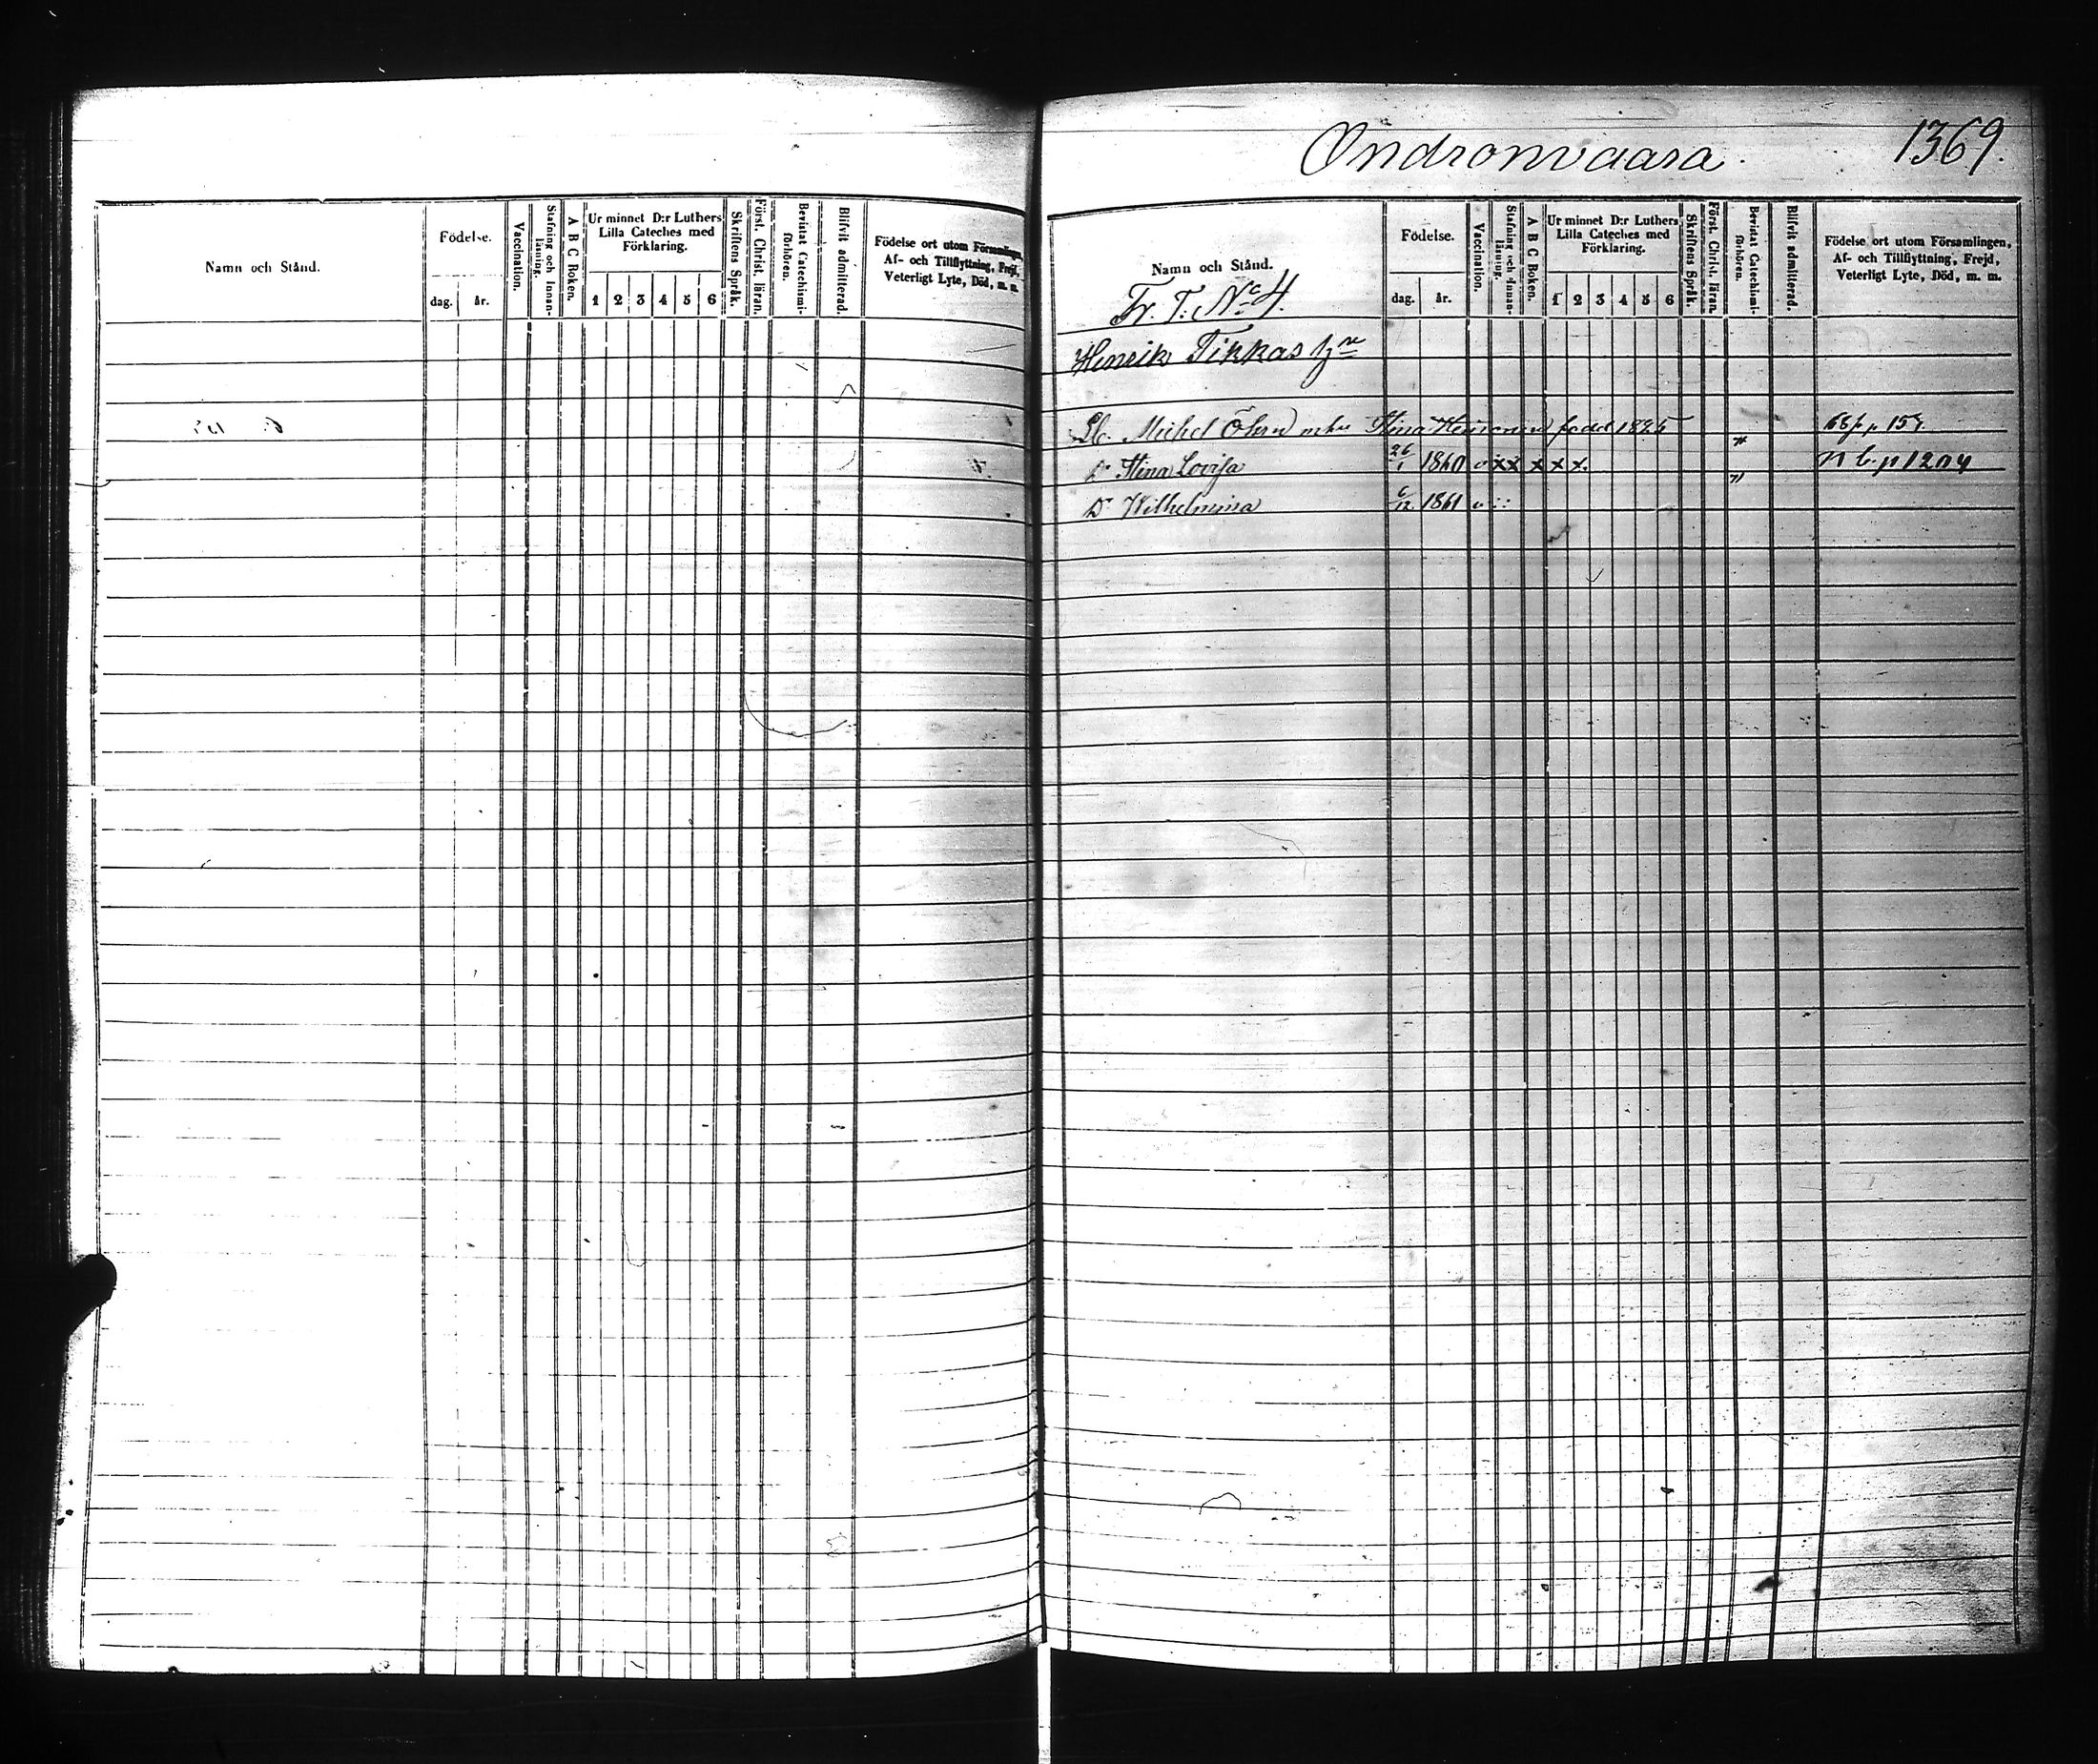 Ondronvaara. 1369.
Namn och Stånd.
Födelse.
dag. år.
Vaccination.
Stafning och Innan-
läsning.
A B C Boken.
Ur minnet D:r Luthers
Lilla Cateches med
Förklaring.
1 2 3 4 5 6
Skriftens Språk.
Först. Christ. läran.
Bevistat Catechismi-
förhören.
Blifvit admitterad.
Födelse ort utom Församlingen,
Af- och Tillflyttning, Frejd,
Veterligt Lyte, Död, m. m.
Namn och Stånd.
Födelse.
dag. år.
Vaccination.
Stafning och Innan-
läsning.
A B C Boken.
Ur minnet D:r Luthers
Lilla Cateches med
Förklaring.
1 2 3 4 5 6
Skriftens Språk.
Först. Christ. läran.
Bevistat Catechismi-
förhören.
Blifvit admitterad.
Födelse ort utom Församlingen,
Af- och Tillflyttning, Frejd,
Veterligt Lyte, Död, m. m.
Fr. T. No 4.
Henrik Tikkas
Michel Stina född
Dr Stina Lovisa 26/1 1860 x x x x x p 1204
Dr Wilhelmina 6/12 1861